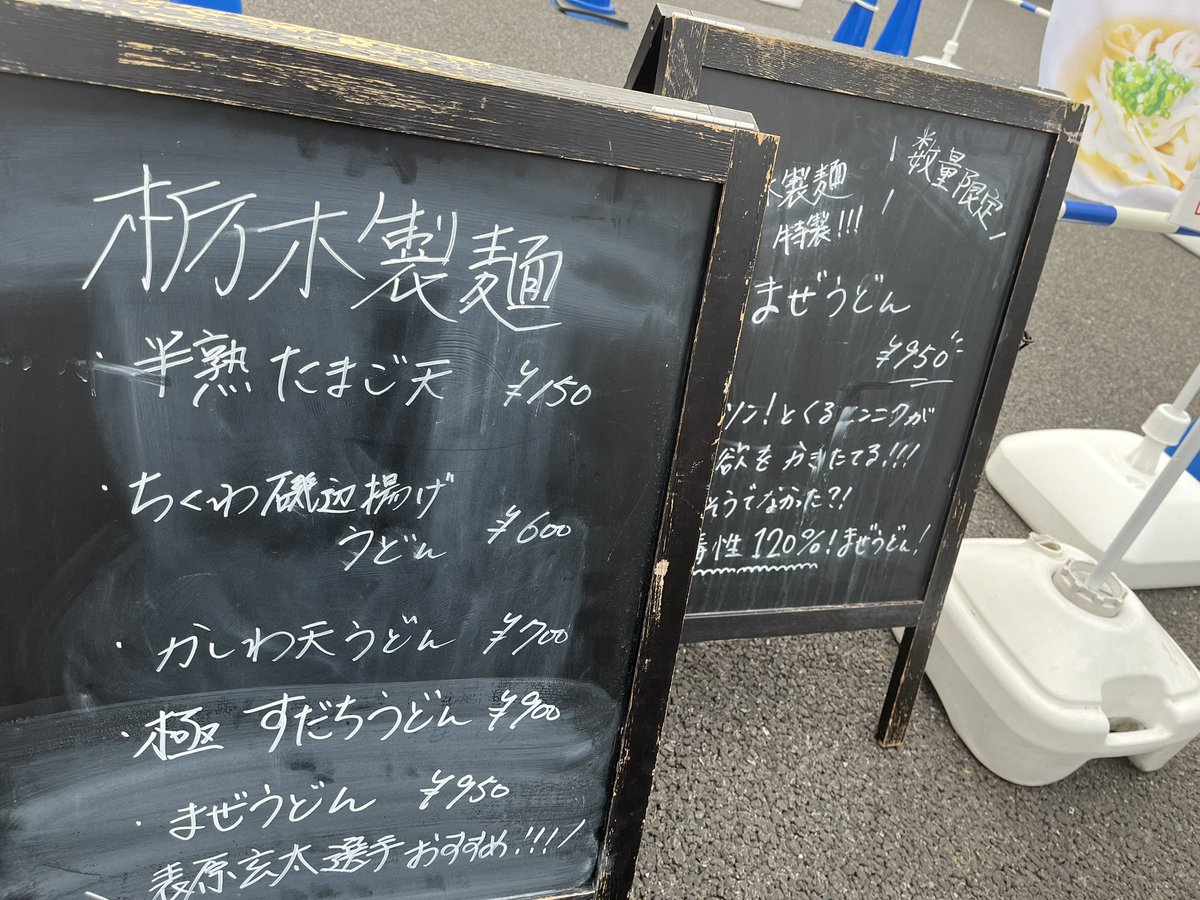 栃木製麺
・半熟たまご天 ¥150
・ちくわ磯辺揚げ
うどん ¥600
・かしわ天うどん ¥700
・極 すだちうどん ¥900
・まぜうどん ¥950
＼表原玄太選手おすすめ!!!!／
数量限定
木製麺
特製!!!
まぜうどん
¥950
ツン!とくるニンニクが
欲をかきたてる!!!
そうでなかった?!
毒性120%!まぜうどん!